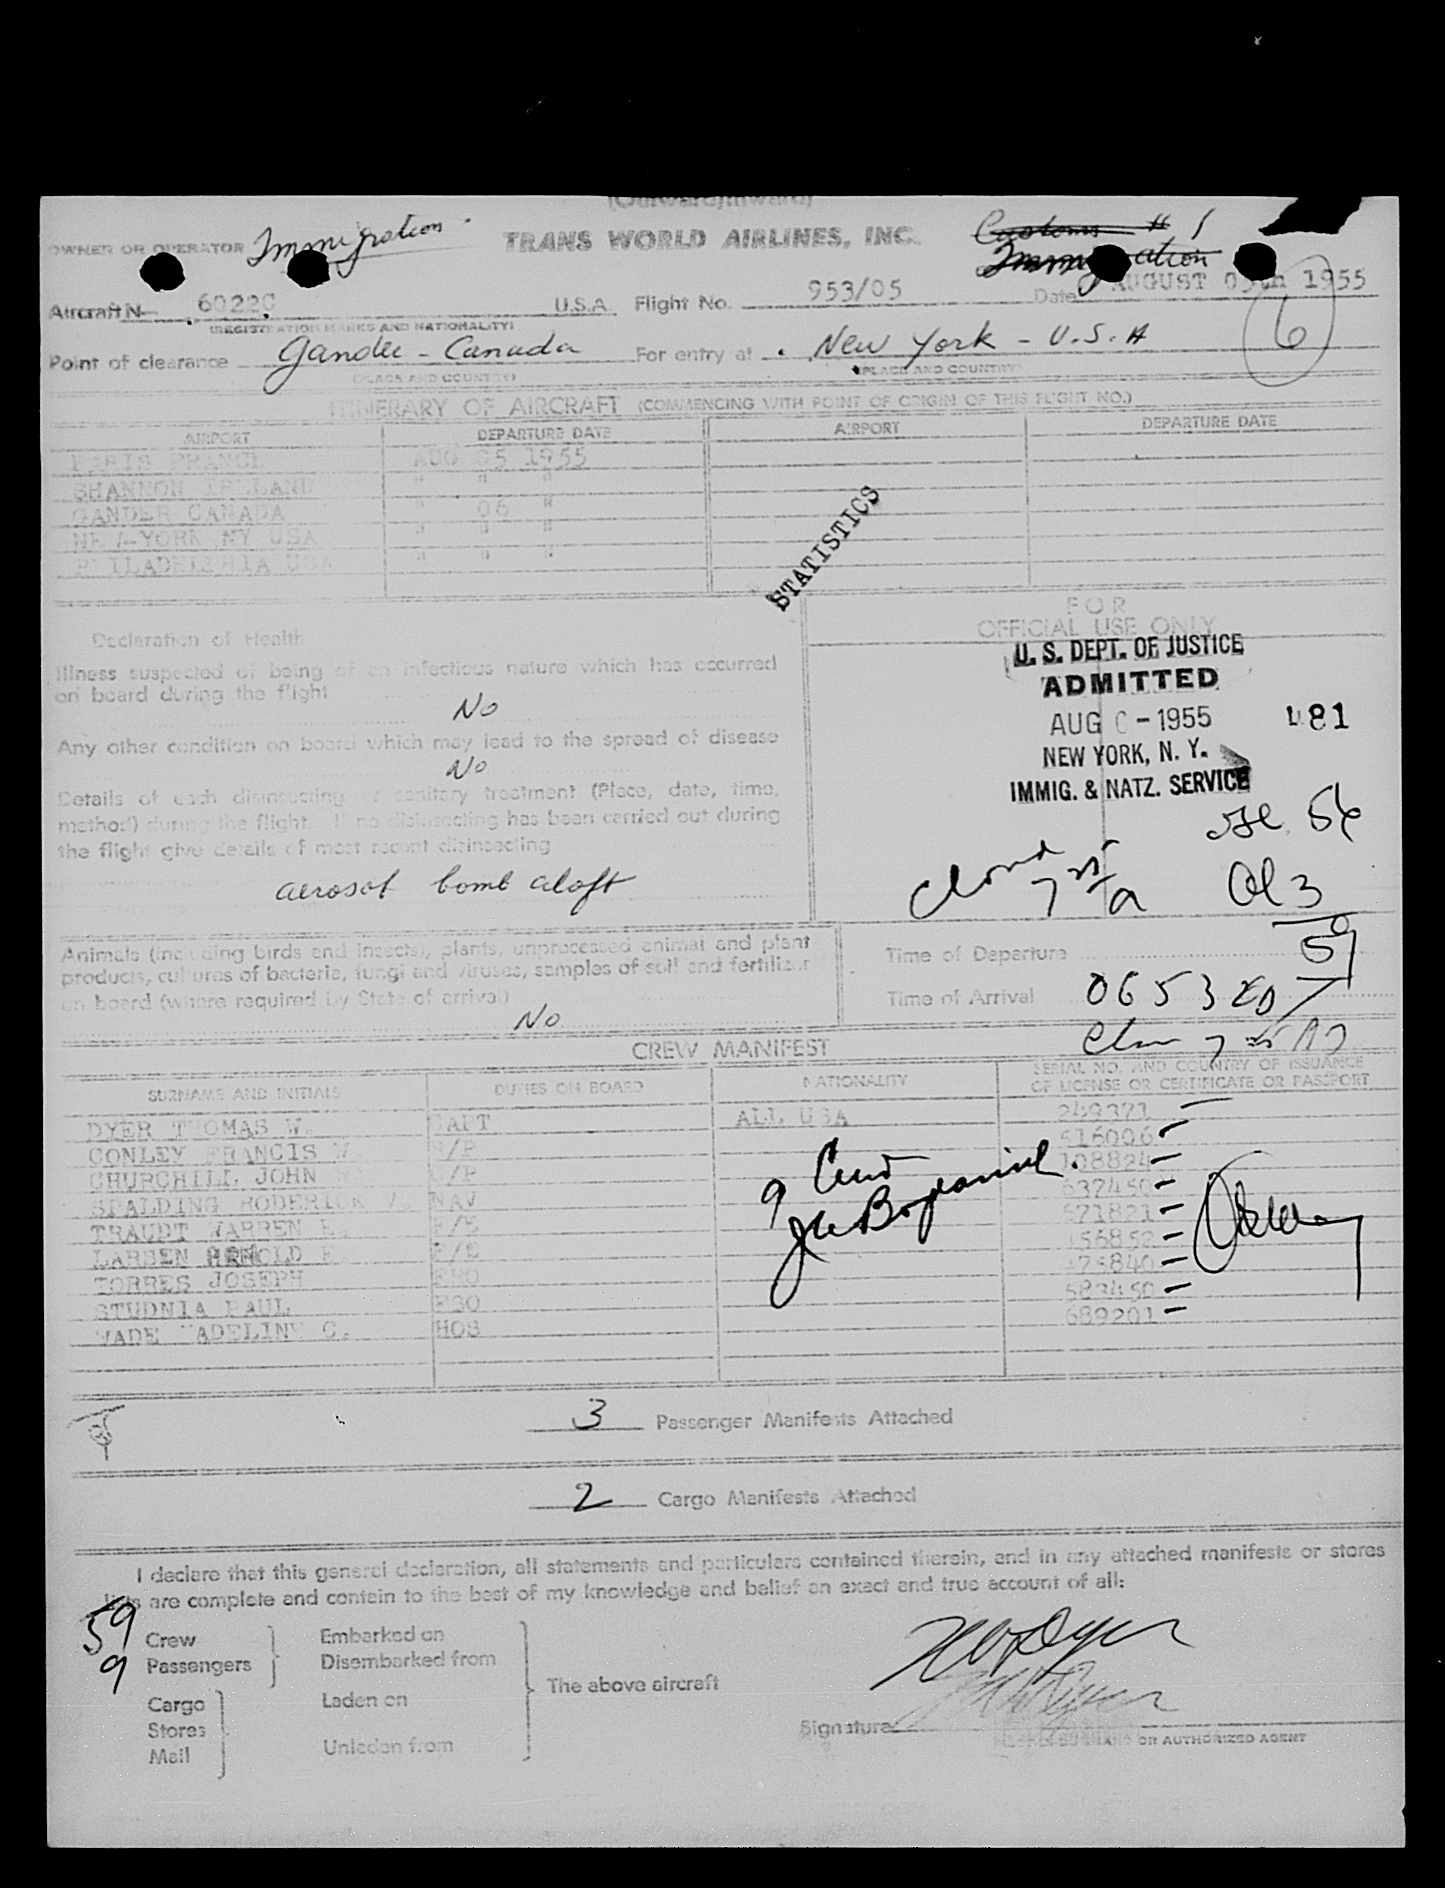 (Outward/Inward)
OWNER OR OPERATOR Immigration TRANS WORLD AIRLINES, INC. Customs # 1
Immigration
Aircraft N- 6022C U.S.A. Flight No. 953/05 Date AUGUST 05th 1955
(REGISTRATION MARKS AND NATIONALITY)
Point of clearance Gander - Canada For entry at New York - U.S.A 6
(PLACE AND COUNTRY) (PLACE AND COUNTRY)
ITINERARY OF AIRCRAFT (COMMENCING WITH POINT OF ORIGIN OF THIS FLIGHT NO.)
AIRPORT DEPARTURE DATE AIRPORT DEPARTURE DATE
PARIS FRANCE AUG 05 1955
SHANNON IRELAND " " "
GANDER CANADA " 06 "
NEW-YORK NY USA " " "
PHILADELPHIA USA " " "
STATISTICS
FOR
OFFICIAL USE ONLY
Declaration of Health
Illness suspected of being of an infectious nature which has occurred
on board during the flight
No
Any other condition on board which may lead to the spread of disease
No
Details of each disinsecting or sanitary treatment (Place, date, time,
method) during the flight. If no disinsecting has been carried out during
the flight give details of most recent disinsecting
aerosol bomb aloft
U. S. DEPT. OF JUSTICE
ADMITTED
AUG 6 - 1955 481
NEW YORK, N. Y.
IMMIG. & NATZ. SERVICE
56
3
59
Animals (including birds and insects), plants, unprocessed animal and plant
products, cultures of bacteria, fungi and viruses, samples of soil and fertilizer
on board (where required by State of arrival)
No
Time of Departure
Time of Arrival 0653
CREW MANIFEST
SURNAME AND INITIALS DUTIES ON BOARD NATIONALITY SERIAL NO. AND COUNTRY OF ISSUANCE
OF LICENSE OR CERTIFICATE OR PASSPORT
DYER THOMAS W. CAPT ALL USA 249371
CONLEY FRANCIS W. F/P 516006
CHURCHILL JOHN F/P 108824
SPALDING RODERICK V. NAV 637450
TRAUDT WARREN E. F/E 671821
LARSEN ARNOLD E. F/E 156852
TORRES JOSEPH 
STUDNIA PAUL FSO 583450
WADE MADELINE C. HOS 689201
9 Crew
3 Passenger Manifests Attached
2 Cargo Manifests Attached
I declare that this general declaration, all statements and particulars contained therein, and in any attached manifests or stores
lists are complete and contain to the best of my knowledge and belief an exact and true account of all:
59 Crew Embarked on
9 Passengers Disembarked from
The above aircraft
Cargo Laden on
Stores
Mail Unladen from
Signature
OR AUTHORIZED AGENT